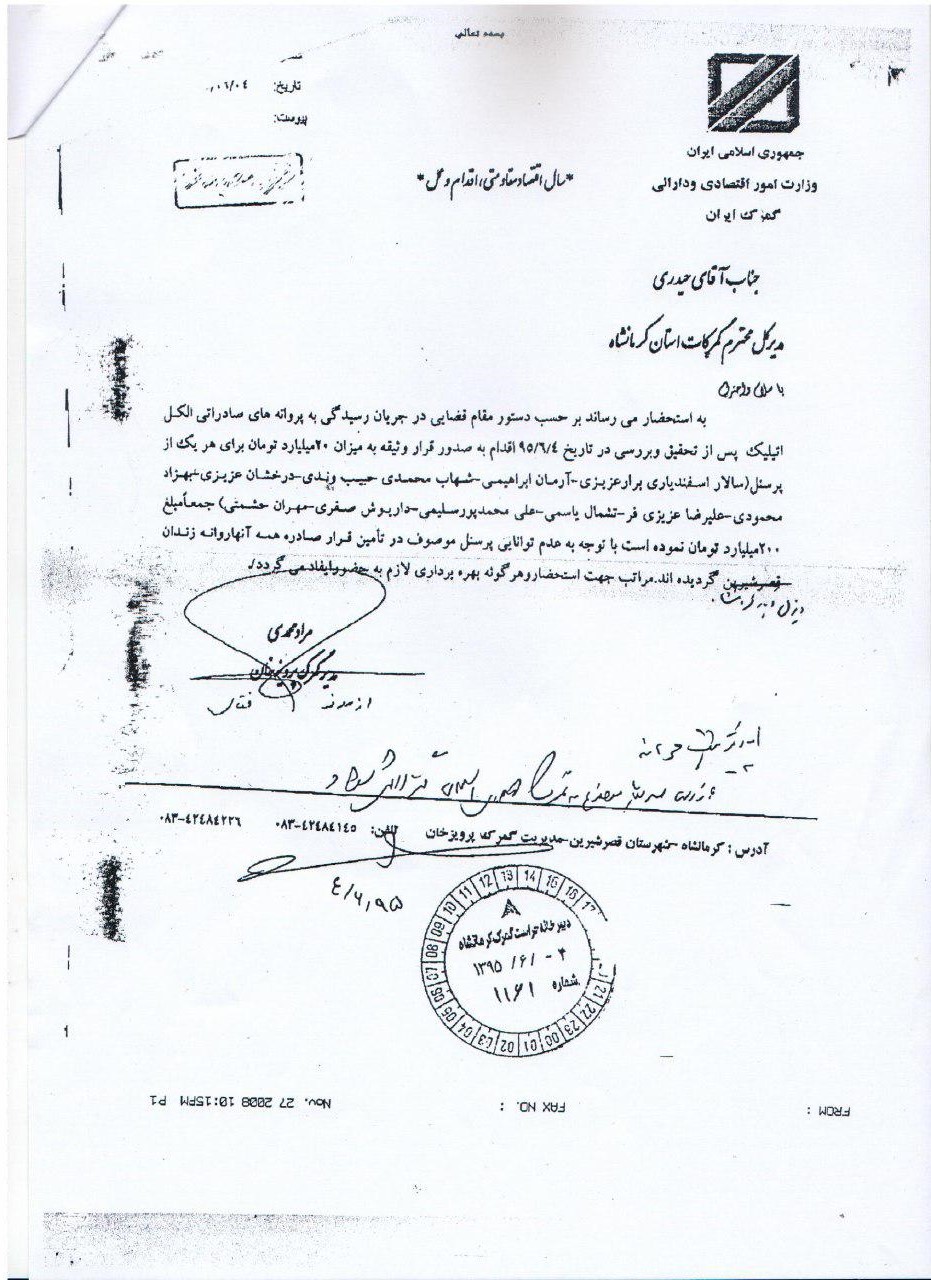 بسمه تعالی
تاریخ: ۰۶/۰۴
پیوست:
جمهوری اسلامی ایران
وزارت امور اقتصادی ودارائی
گمرک ایران
*سال اقتصاد مقاومتی، اقدام و عمل*
جناب آقای حیدری
مدیرکل محترم گمرکات استان کرمانشاه
با سلام واحترام
به استحضار می رساند بر حسب دستور مقام قضایی در جریان رسیدگی به پروانه های صادراتی الکل
اتیلیک پس از تحقیق وبررسی در تاریخ ۹۵/۶/۴ اقدام به صدور قرار وثیقه به میزان ۲۰میلیارد تومان برای هر یک از
پرسنل(سالار اسفندیاری برارعزیزی-آرمان ابراهیمی-شهاب محمدی حبیب وندی-درخشان عزیزی-بهزاد
محمودی-علیرضا عزیزی فر-تشمال یاسمی-علی محمدپورسلیمی-داریوش صفری-مهران حشمتی) جمعاًمبلغ
۲۰۰میلیارد تومان نموده است با توجه به عدم توانایی پرسنل موصوف در تأمین قرار صادره همه آنهاروانه زندان
قصرشیرین گردیده اند.مراتب جهت استحضاروهرگونه بهره برداری لازم به حضورایفاد می گردد/.
مرادمحمدی
مدیر گمرک پرویزخان
آدرس : کرمانشاه -شهرستان قصرشیرین-مدیریت گمرک پرویزخان تلفن: ۰۸۳-۴۲۴۸۴۱۴۵ ۰۸۳-۴۲۴۸۴۲۲۶
۴/۶/۹۵
07 08 09 10 11 12 13 14 15 16 17
دبیرخانه حراست گمرک کرمانشاه
۱۳۹۵ /۶/ -۴
شماره ۱۱۶۱
06 05 04 03 02 01 00 23 22 21
FROM : FAX NO. : Nov. 27 2008 10:15PM P1